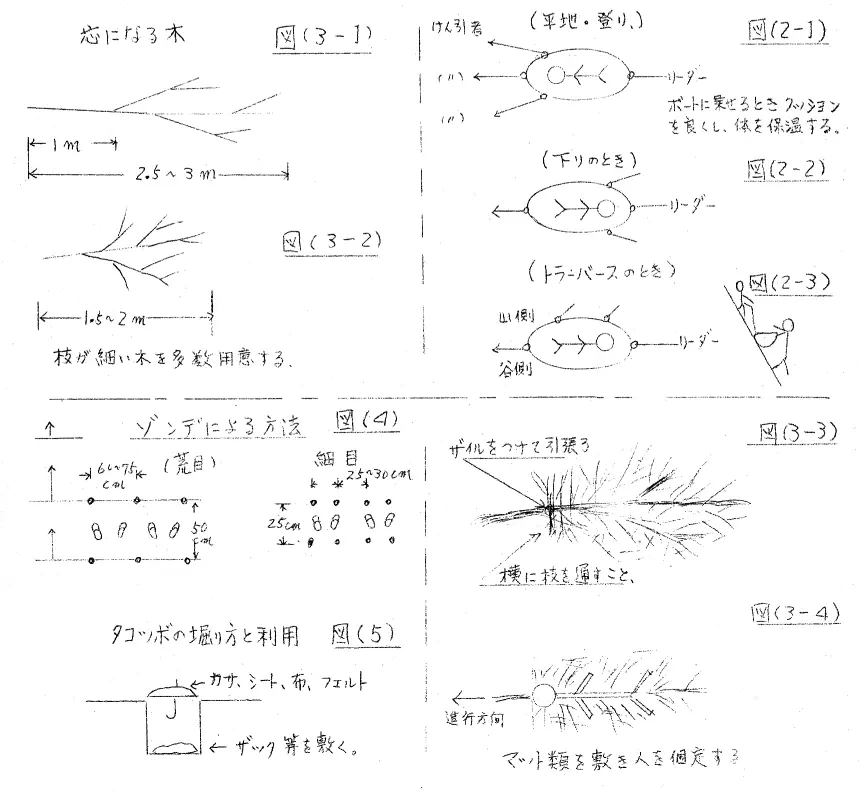 芯になる木
図(3-1)
1m
2.5~3m
図(3-2)
1.5~2m
枝が細い木を多数用意する.
(平地・登り、)
図(2-1)
けん引者
(〃)
(〃)
リーダー
ボートに乗せるときクッション
を良くし、体を保温する。
(下りのとき)
図(2-2)
リーダー
(トラバースのとき)
図(2-3)
山側
谷側
リーダー
ゾンデによる方法
図(4)
60~75
cm
(荒目)
50
cm
細目
25~30cm
25cm
図(3-3)
ザイルをつけて引張る
横に枝を通すこと、
タコツボの堀り方と利用
図(5)
カサ、シート、布、フェルト
ザック等を敷く。
図(3-4)
進行方向
マット類を敷き人を個定する